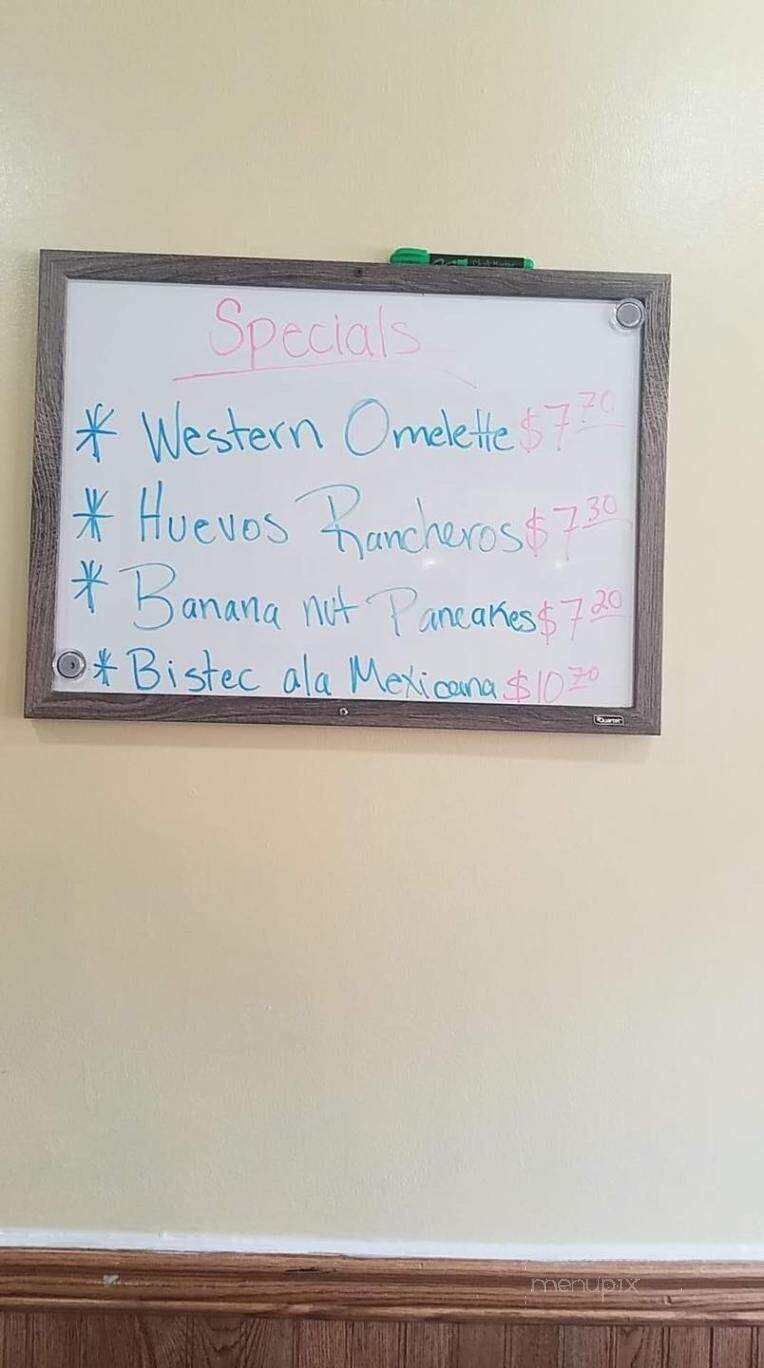 Specials
* Western Omelette $7.70
* Huevos Rancheros $7.30
* Banana nut Pancakes $7.20
* Bistec ala Mexicana $10.70
Quartet
menupix